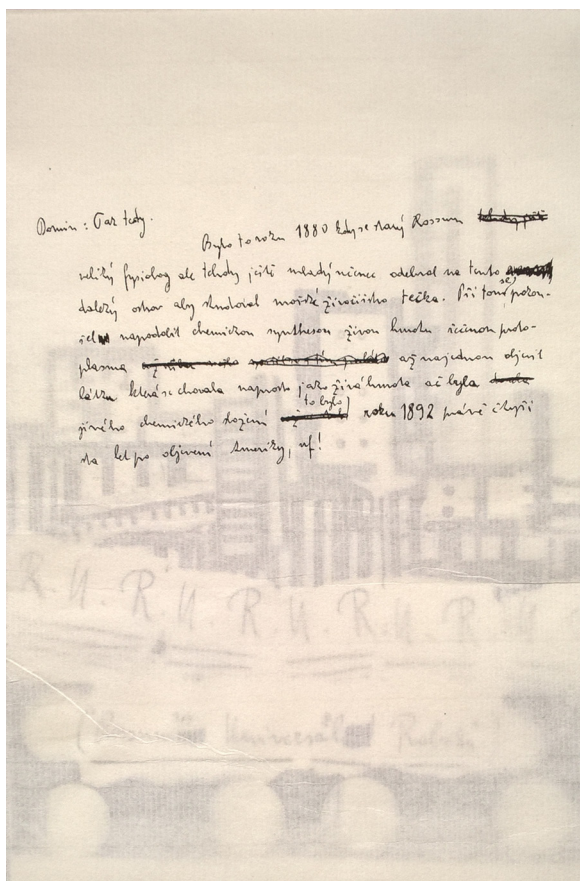 Domin: Tak tedy.
Bylo to roku 1880 kdy se starý Rossum
veliký fysiolog ale tehdy ještě mladý učenec odebral na tento
daleký ostrov aby studoval mořské živočišstvo tečka. Při tom se pokou-
šel napodobit chemickou synthesou živou hmotu řečenou proto-
plasma až najednou objevil
látku která se chovala naprosto jako živá hmota ač byla
jiného chemického složení to bylo roku 1892 právě čtyři
sta let po objevení Ameriky, uf!
R.U.R. R.U.R. R.U.R.
Universální Roboti)